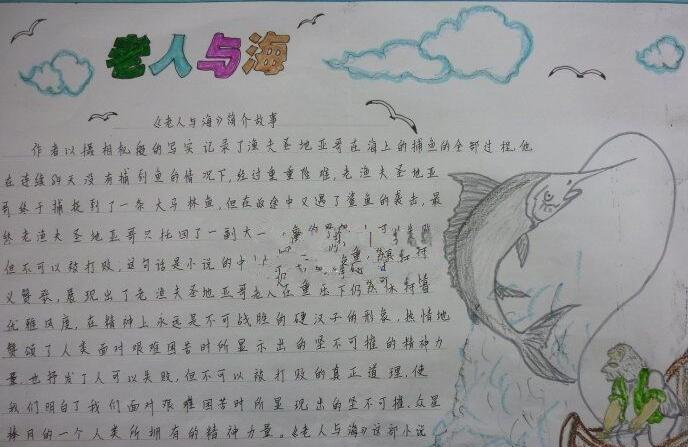 老人与海
《老人与海》简介故事
作者以摄相机般的写实记录了渔夫圣地亚哥在海上的捕鱼的全部过程,他
在连续84天没有捕到鱼的情况下,经过重重险难,老渔夫圣地亚
哥终于捕捉到了一条大马林鱼,但在返途中又遇了鲨鱼的袭击,最
终老渔夫圣地亚哥只拖回了一副大一 可
但不可以被打败,这句话是小说的中 重,
义赞歌,展现出了老渔夫圣地亚哥老人在重压下仍 保持着
优雅风度,在精神上永远是不可战胜的硬汉子的形象,热情地
赞颂了人类面对艰难困苦时所显示出的坚不可摧的精神力
量.也抒发了人可以失败,但不可以被打败的真正道理,使
我们明白了我们面对艰难困苦时所显现出的坚不可摧.众星
捧月的一个人类所拥有的精神力量。《老人与海》这部小说